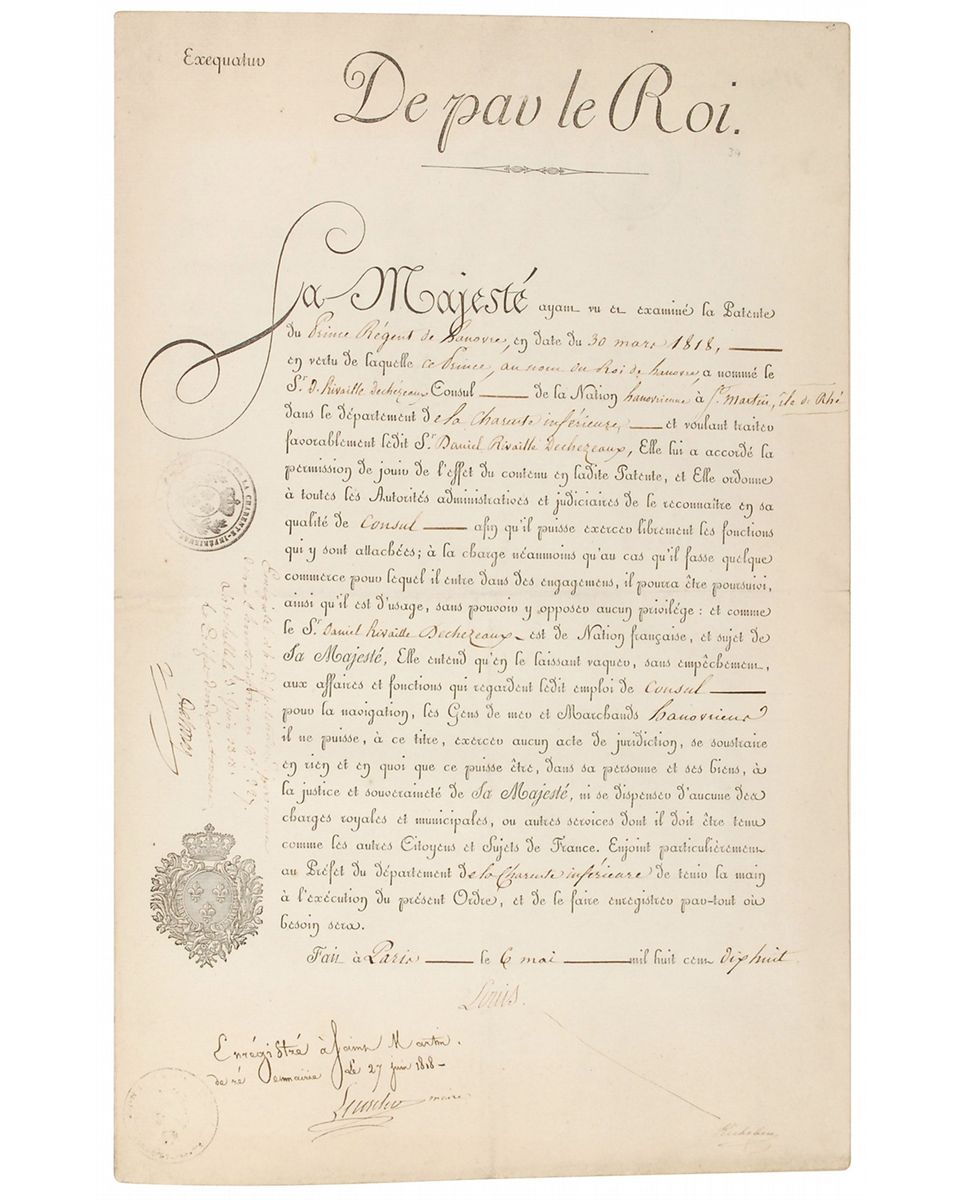 Exequatur
De par le Roi.
34
Sa Majesté ayant vu et examiné la Patente
du Prince Régent de hanovre, en date du 30 mars 1818,
en vertu de laquelle ce Prince, au nom du Roi de hanovre, a nommé le
Sr. D. Rivaille Dechézeaux Consul de la Nation hanovrienne à St. Martin, île de Rhé
dans le département de la Charente inférieure, et voulant traiter
favorablement ledit Sr. Daniel Rivaille Dechezeaux, Elle lui a accordé la
permission de jouir de l'effet du contenu en ladite Patente, et Elle ordonne
à toutes les Autorités administratives et judiciaires de le reconnaître en sa
qualité de Consul afin qu'il puisse exercer librement les fonctions
qui y sont attachées; à la charge néanmoins qu'au cas qu'il fasse quelque
commerce pour lequel il entre dans des engagemens, il pourra être poursuivi,
ainsi qu'il est d'usage, sans pouvoir y opposer aucun privilége: et comme
le Sr. Daniel Rivaille Dechezeaux est de Nation française, et sujet de
Sa Majesté, Elle entend qu'en le laissant vaquer, sans empêchement,
aux affaires et fonctions qui regardent ledit emploi de Consul
pour la navigation, les Gens de mer et Marchands hanovriens
il ne puisse, à ce titre, exercer aucun acte de juridiction, se soustraire
en rien et en quoi que ce puisse être, dans sa personne et ses biens, à
la justice et souveraineté de Sa Majesté, ni se dispenser d'aucune des
charges royales et municipales, ou autres services dont il doit être tenu
comme les autres Citoyens et Sujets de France. Enjoint particulièrement
au Préfet du département de la Charente inférieure de tenir la main
à l'exécution du présent Ordre, et de le faire enregistrer par-tout où
besoin sera.
Fait à Paris le 6 mai mil huit cent dix huit.
Louis.
Enrégistré à Saint Martin
de ré en mairie Le 27 juin 1818
maire
LA CHARENTE-INFERIEURE